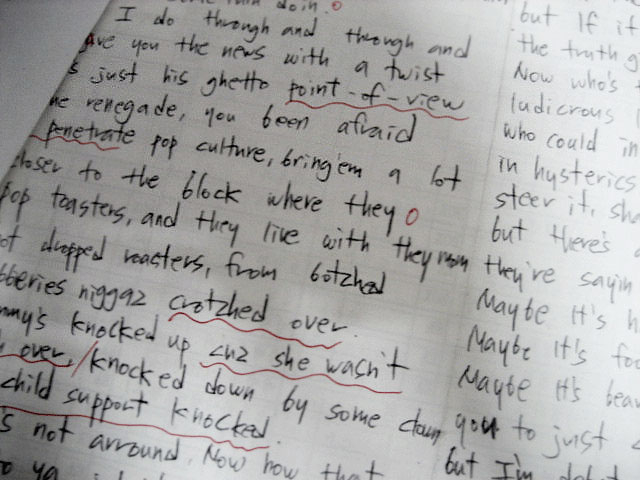 doin.
I do through and through and
ave you the news with a twist
s just his ghetto point-of-view
he renegade, you been afraid
penetrate pop culture, bring'em a lot
closer to the block where they
pop toasters, and they live with they mom
ot dropped roasters, from botzhed
bberies niggaz crotzhed over.
mmy's knocked up cuz she wasn't
over, knocked down by some clown
child support knocked.
s not arround. Now how that
ya
but If it
the truth g
Now who's t
ludicrous
who could in
in hysterics
steer it, sha
but there's a
they're sayin
Maybe It's h
Maybe It's foo
Maybe It's beau
you to just
but I'm